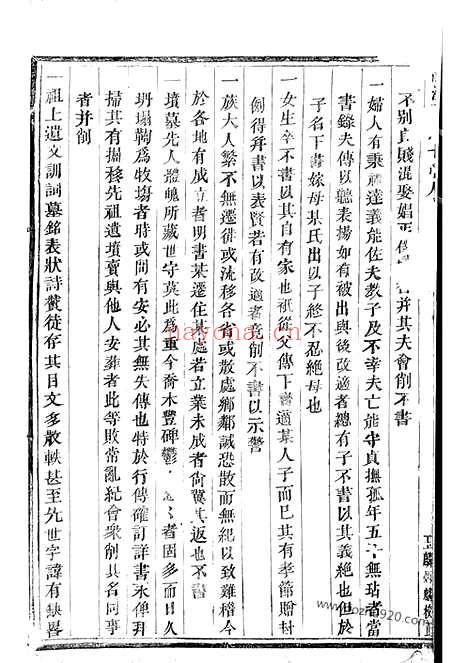 不別良賤混娶娼 并其夫會削不書
一婦人有秉禮達義能佐夫教子及不幸夫亡能守貞撫孤年五十無玷者當
書錄夫傳以聽表揚如有被出與後改適者總有子不書以其義絕也但於
子名下書嫁母某氏出以子終不忍絕母也
一女生卒不書以其自有家也祇從父傳下書適某人子而已其有孝節贈封
例得拜書以表賢若有改適者竟削不書以示警
一族大人繁不無遷徙或流移各省或散處鄉鄰誠恐散而無紀以致難稽今
於各地有成立者明書某遷住某處若立業未成者尙冀其返也不書
一墳墓先人體魄所藏世守莫此爲重今喬木豐碑鬱 者固多而日久
坍塌鞠爲牧場者時或間有安必其無失傳也特於行傳確訂詳書永俾拜
掃其有掘移先祖遺墳賣與他人安葬者此等敗常亂紀會衆削其名同事
者并削
一祖上遺文訓詞墓銘表狀詩贊從存其目文多散軼甚至先世字諱有缺畧
nayona.cn